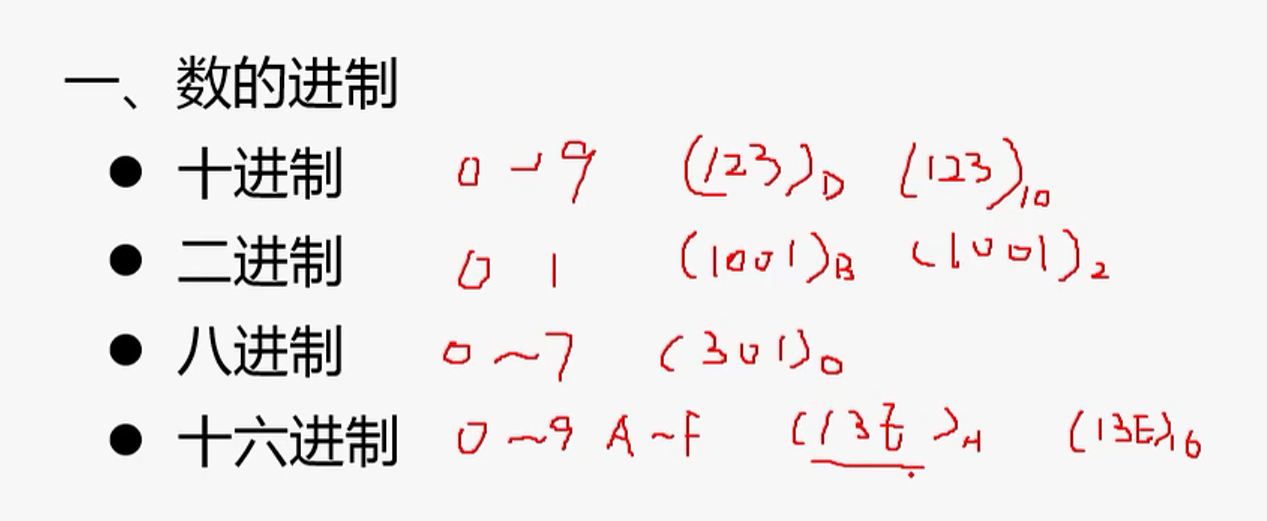 一、数的进制
● 十进制 0~9 (123)D (123)10
● 二进制 0 1 (1001)B (1001)2
● 八进制 0~7 (301)O
● 十六进制 0~9 A~F (13E)H (13E)16